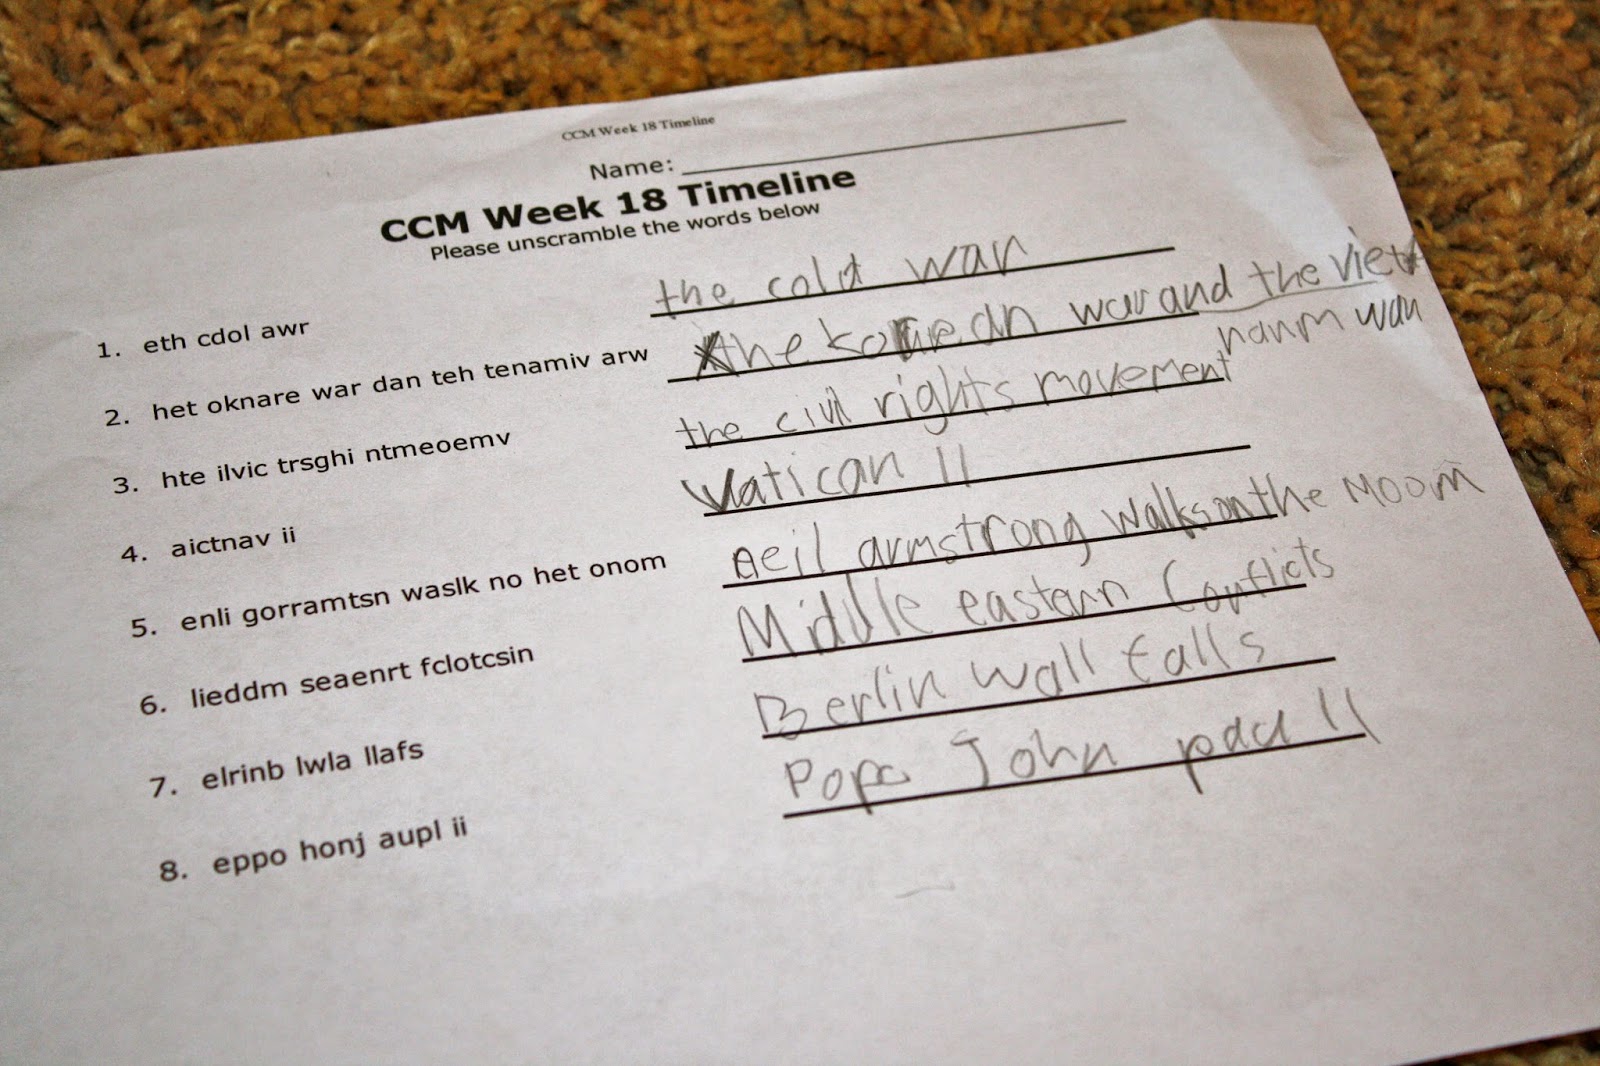 CCM Week 18 Timeline
Name:
CCM Week 18 Timeline
Please unscramble the words below
1. eth cdol awr the cold war
2. het oknare war dan teh tenamiv arw the korean war and the viet
nanm war
3. hte ilvic trsghi ntmeoemv the civil rights movement
4. aictnav ii Vatican II
5. enli gorramtsn waslk no het onom neil armstrong walks on the moom
6. lieddm seaenrt fclotcsin Middle eastern Conflicts
7. elrinb lwla llafs Berlin wall falls
8. eppo honj aupl ii Pope John paul II